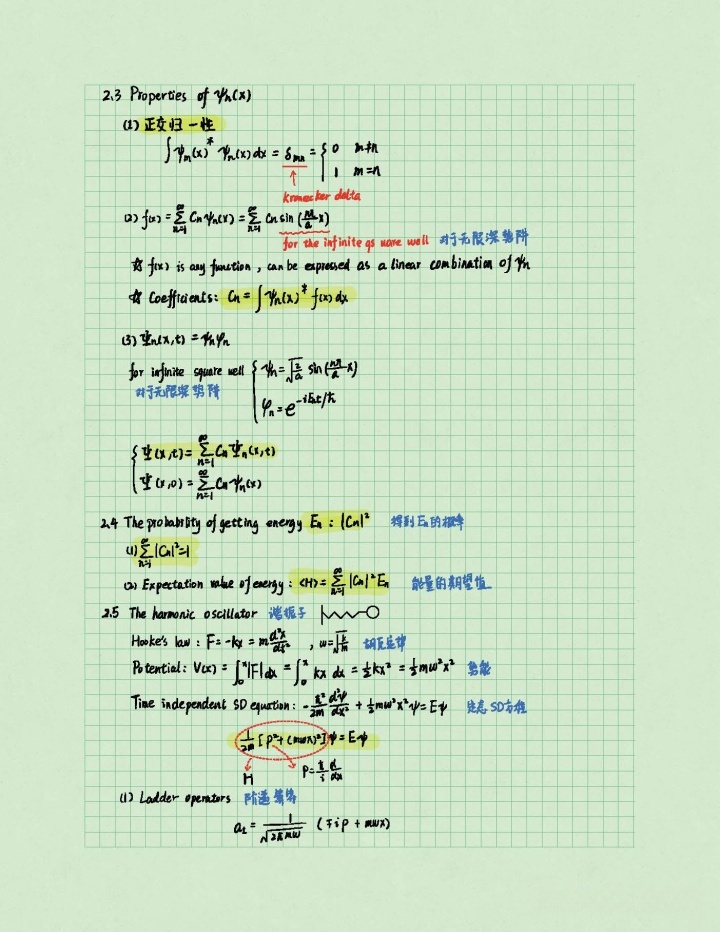 2.3 Properties of ψn(x)
(1) 正交归一性
∫ψm(x)* ψn(x) dx = δmn = { 0 m≠n
1 m=n
kronecker delta
(2) f(x) = ∑_{n=1}^∞ Cn ψn(x) = ∑_{n=1}^∞ Cn sin (nπ/a x)
for the infinite square well 对于无限深势阱
☆ f(x) is any function, can be expressed as a linear combination of ψn
☆ Coefficients: Cn = ∫ψn(x)* f(x) dx
(3) Ψn(x,t) = ψnφn
for infinite square well { ψn = √(2/a) sin(nπ/a x)
对于无限深势阱
φn = e^{-iEnt/ħ}
{ Ψ(x,t) = ∑_{n=1}^∞ CnΨn(x,t)
Ψ(x,0) = ∑_{n=1}^∞ Cnψn(x)
2.4 The probability of getting energy En : |Cn|² 得到En的概率
(1) ∑_{n=1}^∞ |Cn|²=1
(2) Expectation value of energy : <H> = ∑_{n=1}^∞ |Cn|²En 能量的期望值
2.5 The harmonic oscillator 谐振子
Hooke's law : F = -kx = m d²x/dt² , w=√(k/m) 胡克定律
Potential: V(x) = ∫_0^x |F| dx = ∫_0^x kx dx = ½kx² = ½mw²x² 势能
Time independent SD equation: -ħ²/2m d²ψ/dx² + ½mw²x²ψ = Eψ 定态SD方程
1/2m [p²+(mwx)²]ψ = Eψ
H P = ħ/i d/dx
(1) Ladder operators 阶递算符
a± = 1/√(2ħmw) (∓ip + mwx)